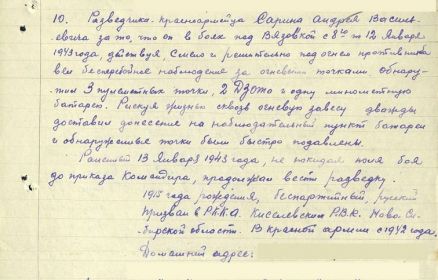 10. Разведчика-красноармейца Сарина Андрея Василь-
евича за то, что он в боях под Вязовкой с 8го по 12 января
1943 года, действуя, смело и решительно под огнем противника
вел бесперебойное наблюдение за огневыми точками. Обнару-
жил 3 пулеметных точки, 2 ДЗОТа и одну минометную
батарею. Рискуя жизнью сквозь огневую завесу дважды
доставил донесение на наблюдательный пункт батареи
и обнаруженные точки были быстро подавлены.
Раненый 13 января 1943 года, не покидая поля боя
до приказа командира, продолжал вести разведку.
1915 года рождения, беспартийный, русский
призван в РККА. Киселевским Р.В.К. Ново-Си-
бирской области. В Красной армии с 1942 года,
Домашний адрес: